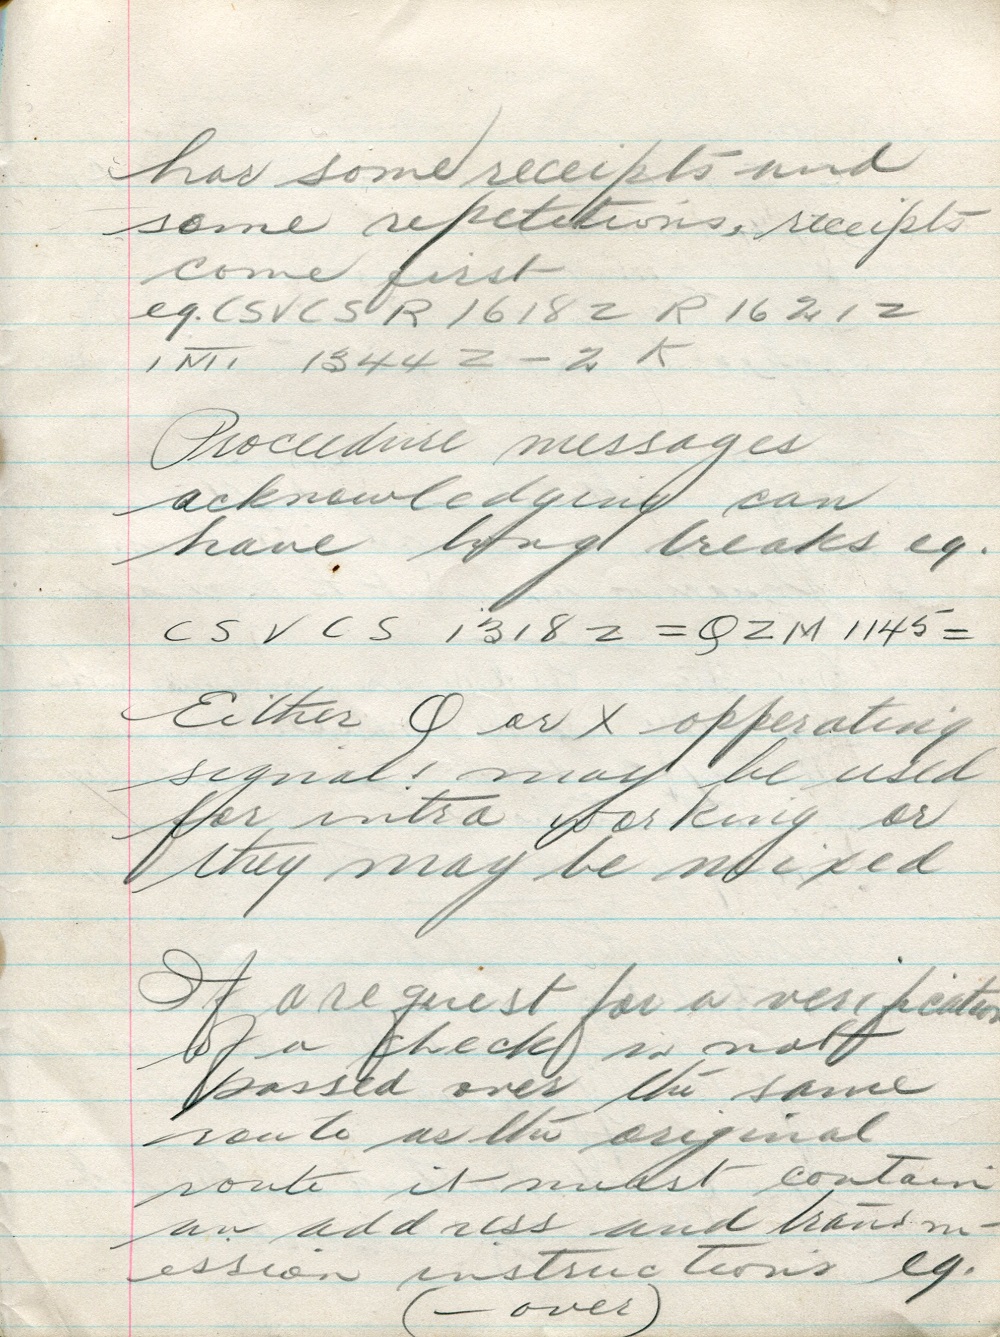 has some receipts and
some repetitions, receipts
come first
eg. CSVCS R 1618Z R 1621Z
IMI 1344Z - 2 K
Procedure messages
acknowledging can
have long breaks eg.
CSVCS 1318Z = QZM 1145 =
Either Q or X opperating
signals may be used
for intra working or
they may be mixed
If a request for a verification
of a check is not
passed over the same
route as the original
route it must contain
an address and transm-
ession instructions eg.
(- over)